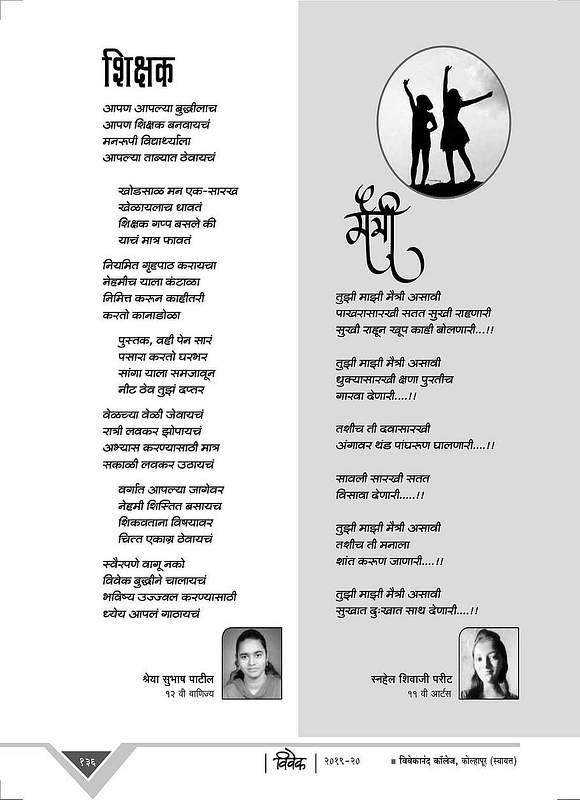 शिक्षक
आपण आपल्या बुद्धीलाच
आपण शिक्षक बनवायचं
मनरूपी विद्यार्थ्याला
आपल्या ताब्यात ठेवायचं
खोडसाळ मन एक-सारख
खेळायलाच धावतं
शिक्षक गप्प बसले की
याचं मात्र फावतं
नियमित गृहपाठ करायचा
नेहमीच याला कंटाळा
निमित्त करून काहीतरी
करतो कानाडोळा
पुस्तक, वही पेन सारं
पसारा करतो घरभर
सांगा याला समजावून
नीट ठेव तुझं दप्तर
वेळच्या वेळी जेवायचं
रात्री लवकर झोपायचं
अभ्यास करण्यासाठी मात्र
सकाळी लवकर उठायचं
वर्गात आपल्या जागेवर
नेहमी शिस्तित बसायच
शिकवताना विषयावर
चित्त एकाग्र ठेवायचं
स्वैरपणे वागू नको
विवेक बुद्धीने चालायचं
भविष्य उज्ज्वल करण्यासाठी
ध्येय आपलं गाठायचं
श्रेया सुभाष पाटील
१२ वी वाणिज्य
मैत्री
तुझी माझी मैत्री असावी
पाखरासारखी सतत सुखी राहणारी
सुखी राहून खूप काही बोलणारी...!!
तुझी माझी मैत्री असावी
धुक्यासारखी क्षणा पुरतीच
गारवा देणारी....!!
तशीच ती दवासारखी
अंगावर थंड पांघरूण घालणारी....!!
सावली सारखी सतत
विसावा देणारी.....!!
तुझी माझी मैत्री असावी
तशीच ती मनाला
शांत करूण जाणारी....!!
तुझी माझी मैत्री असावी
सुखात दुःखात साथ देणारी....!!
स्नहेल शिवाजी परीट
११ वी आर्टस
१३६
विवेक
२०१९-२०
■ विवेकानंद कॉलेज, कोल्हापूर (स्वायत्त)